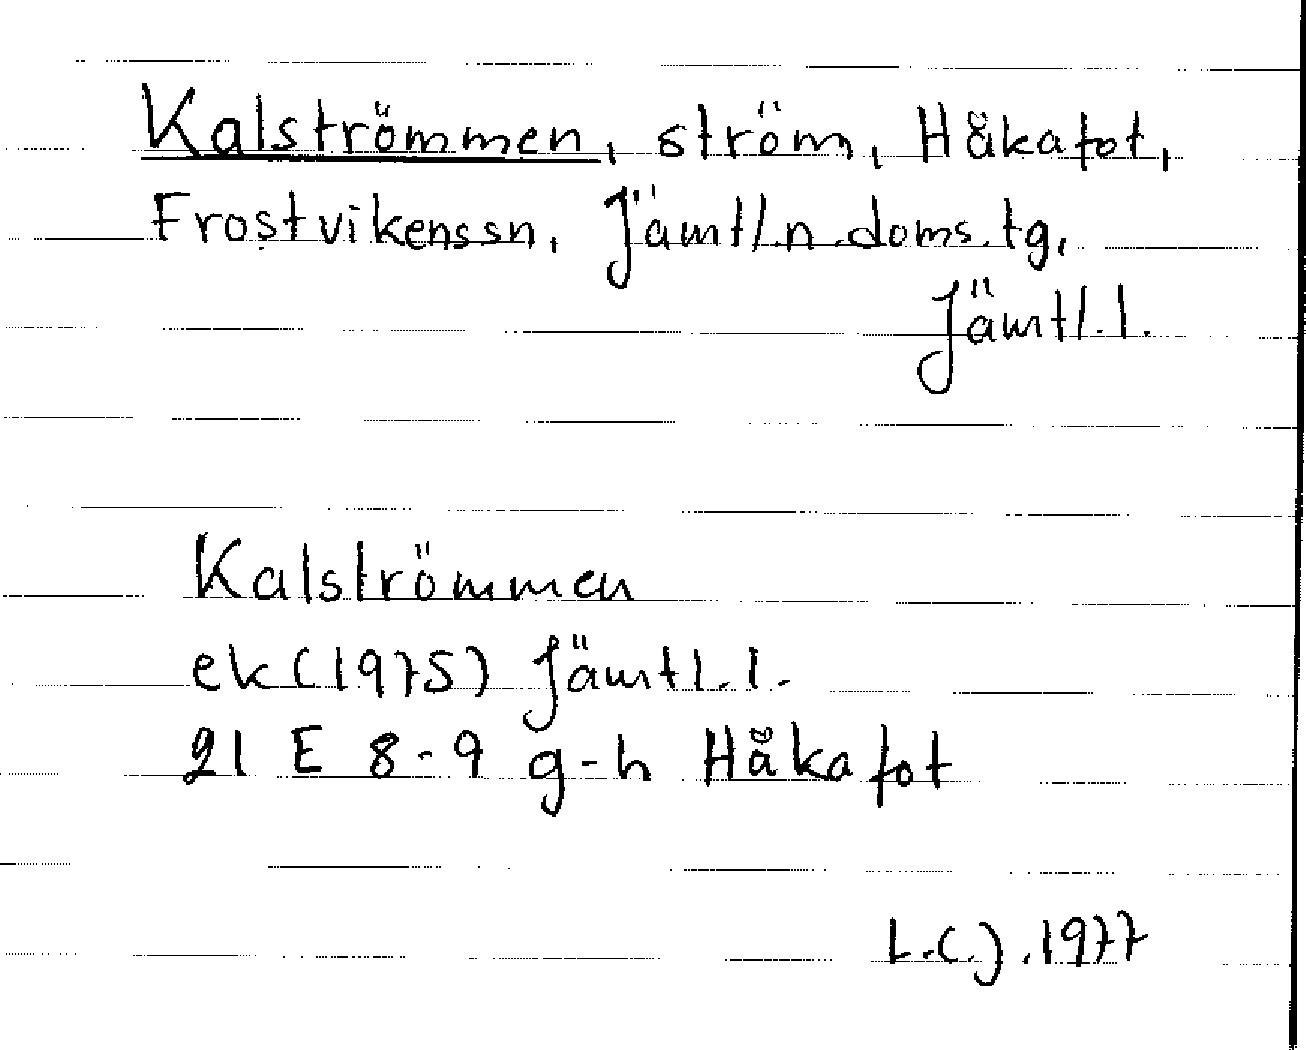 Kalströmmen, ström, Håkafot,
Frostvikenssn, Jämtl.n.doms.tg,
Jämtl.l.
Kalströmmen
ek(1975) Jämtl.l.
21 E 8-9 g-h Håkafot
L.C.J.1977